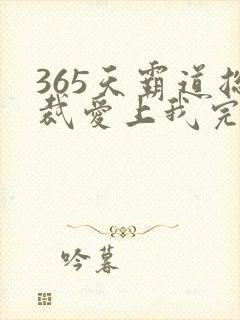 365天霸道总
裁爱上我完
吟暮